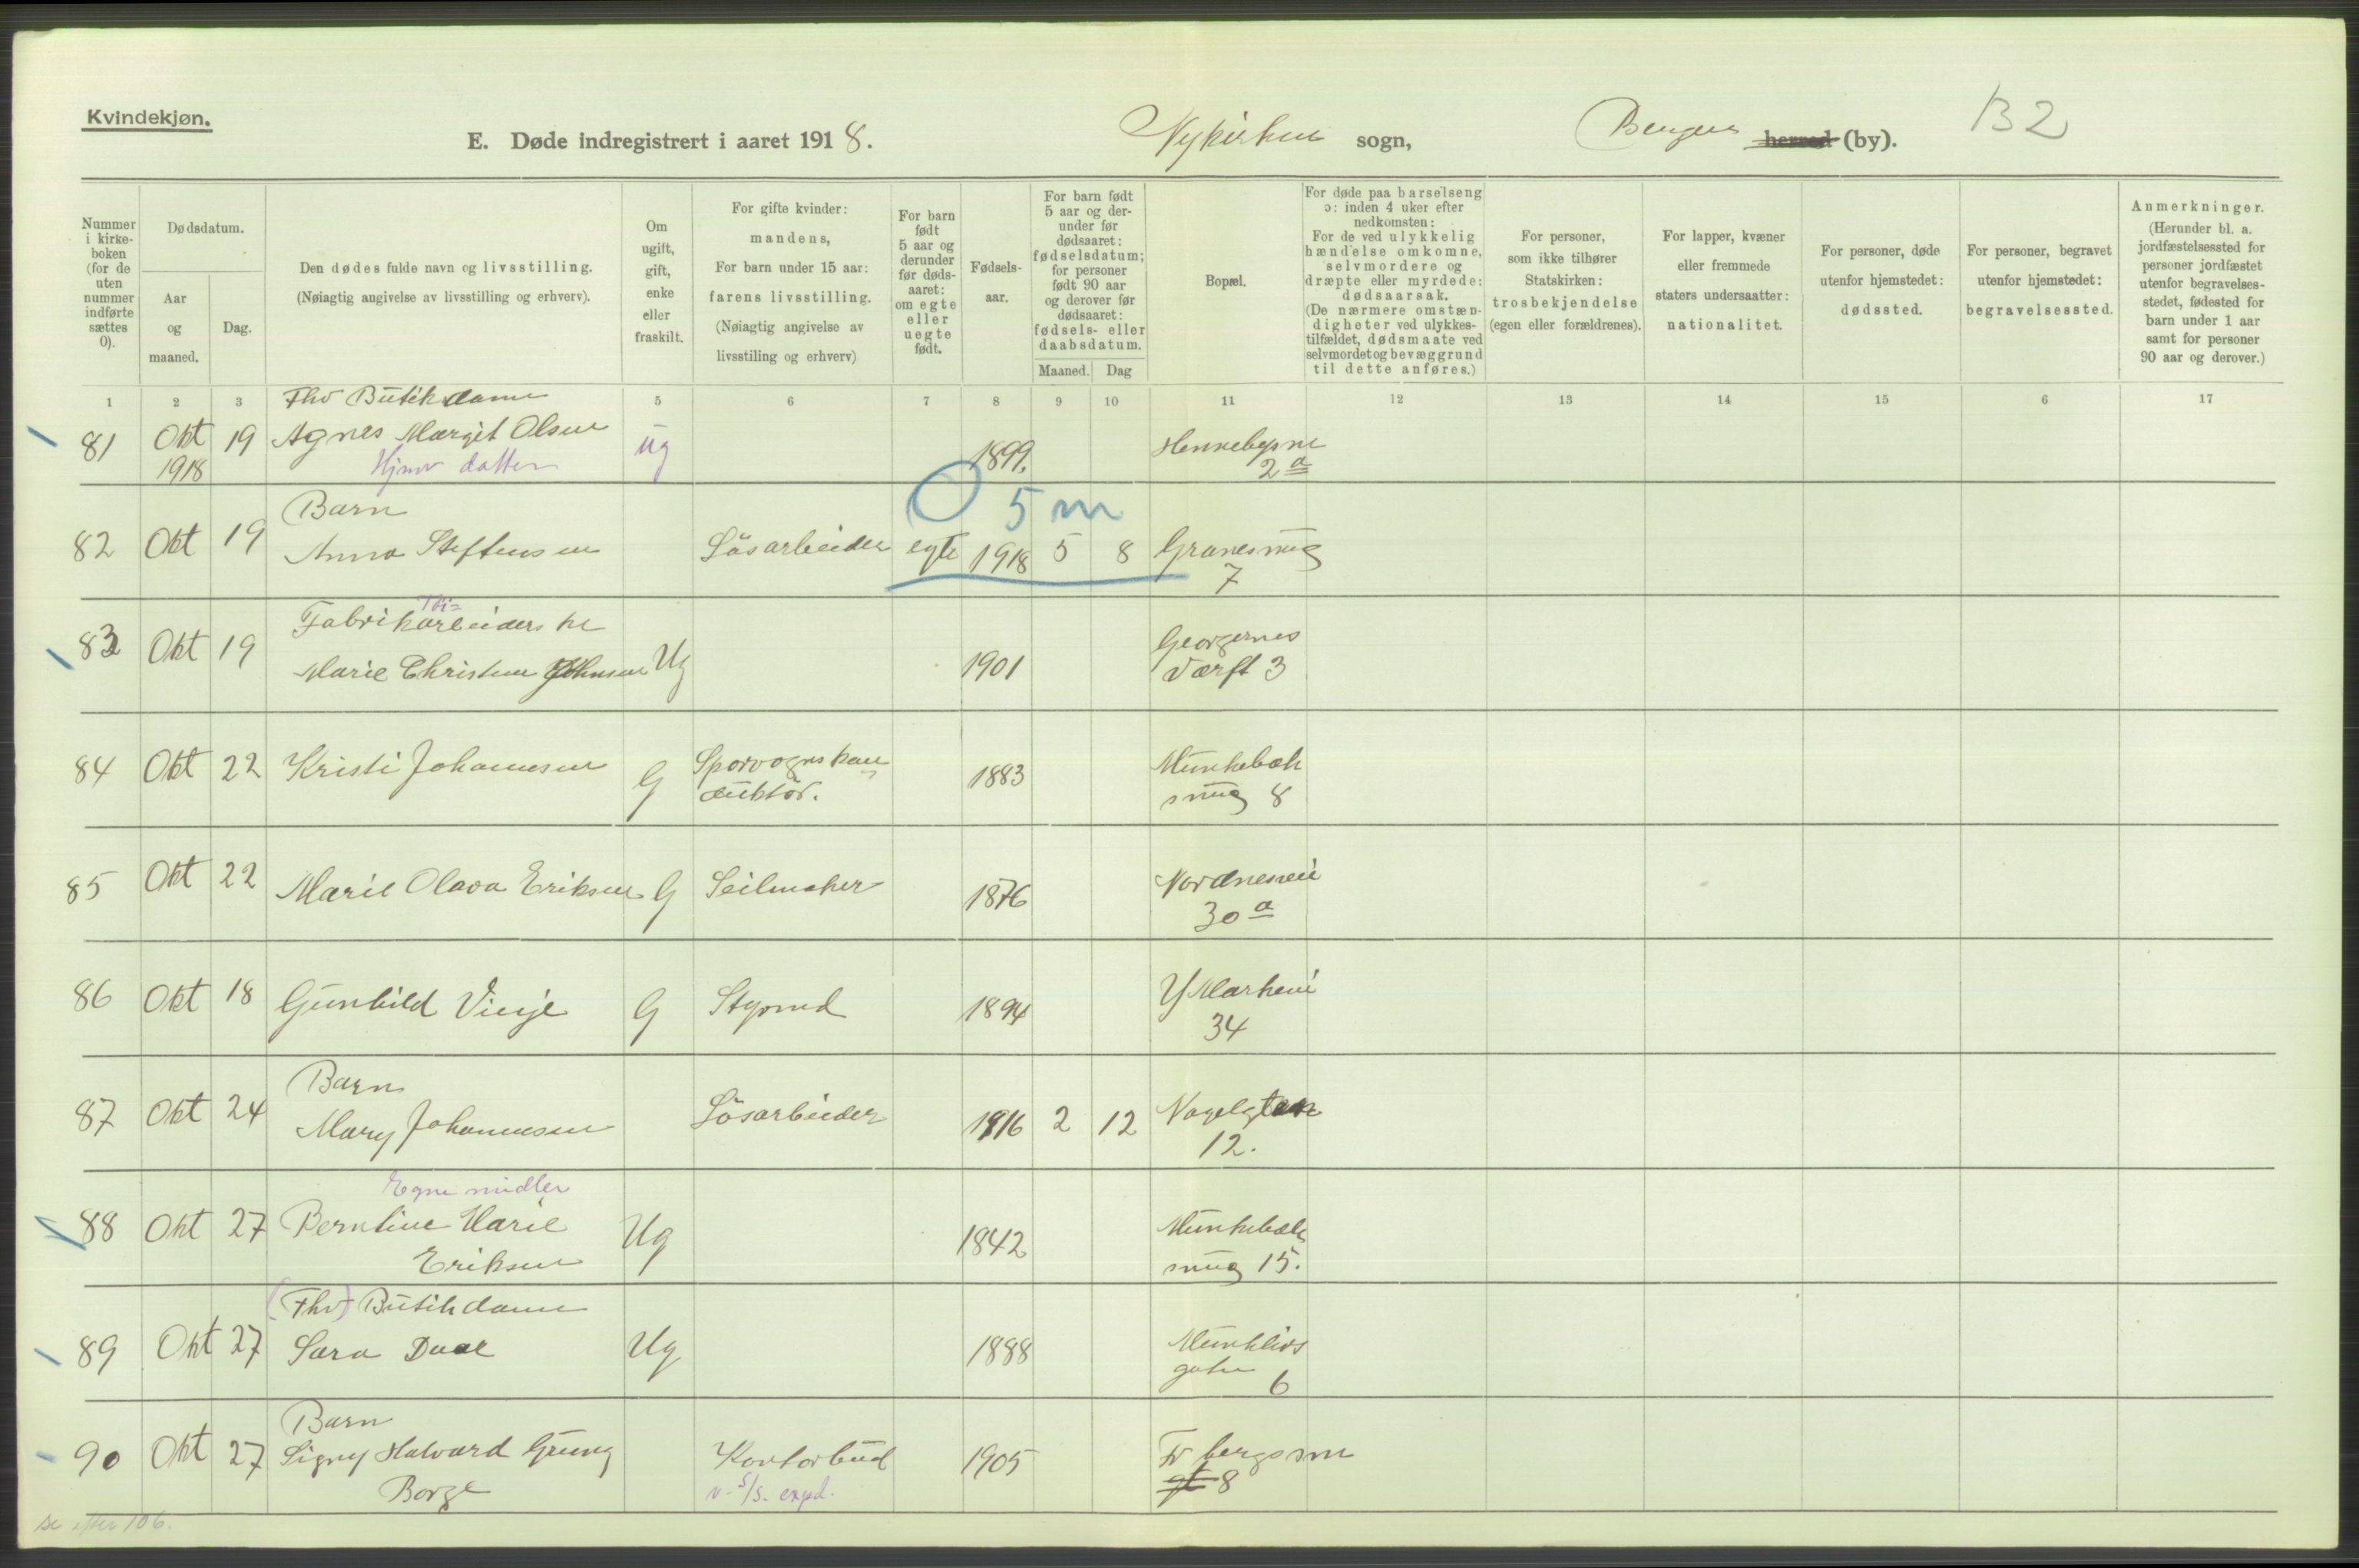 Kvindekjøn.
E. Døde indregistrert i aaret 1918. Nykirken sogn, Bergens herred (by). 132
Nummer i kirkeboken (for de uten nummer indførte sættes 0).
Dødsdatum.
Aar og maaned.
Dag.
Den dødes fulde navn og livsstilling.
(Nøiagtig angivelse av livsstilling og erhverv).
Om ugift, gift, enke eller fraskilt.
For gifte kvinder: mandens,
For barn under 15 aar: farens livsstilling.
(Nøiagtig angivelse av livsstiling og erhverv)
For barn født 5 aar og derunder før dødsaaret: om egte eller uegte født.
Fødselsaar.
For barn født 5 aar og derunder før dødsaaret: fødselsdatum; for personer født 90 aar og derover før dødsaaret: fødsels- eller daabsdatum.
Maaned. Dag
Bopæl.
For døde paa barselseng ɔ: inden 4 uker efter nedkomsten:
For de ved ulykkelig hændelse omkomne, selvmordere og dræpte eller myrdede: dødsaarsak.
(De nærmere omstændigheter ved ulykkestilfældet, dødsmaate ved selvmordet og bevæggrund til dette anføres.)
For personer, som ikke tilhører Statskirken: trosbekjendelse (egen eller forældrenes).
For lapper, kvæner eller fremmede staters undersaatter: nationalitet.
For personer, døde utenfor hjemstedet: dødssted.
For personer, begravet utenfor hjemstedet: begravelsessted.
Anmerkninger.
(Herunder bl. a. jordfæstelsessted for personer jordfæstet utenfor begravelsesstedet, fødested for barn under 1 aar samt for personer 90 aar og derover.)
1 2 3 5 6 7 8 9 10 11 12 13 14 15 6 17
Fhv Butikdame
81 Okt 19 Agnes Margit Olsen ug 1899. Hennebysm
1918 Hjmv datter 2a
Barn O 5 m
82 Okt 19 Anna Steffensen Løsarbeider egte 1918 5 8 Granesmug
7
Fabrikarbeiderske
83 Okt 19 Marie Christine Johnsen Ug 1901 Georgernes
Værft 3
84 Okt 22 Kristi Johannesen G Sporvognskon
duktør. 1883 Munkebæk
smug 8
85 Okt 22 Marie Olava Eriksen G Seilmaker 1876 Nordnesvei
30a
86 Okt 18 Gunhild Vinje G Styrmd 1894 Y Markevei
34
Barn
87 Okt 24 Mary Johannesen Løsarbeider 1916 2 12 Nagelgten
12.
Egne midler
88 Okt 27 Berntine Marie Ug 1842 Munkebæk
Eriksen smug 15.
(Fhv) Butikdame
89 Okt 27 Sara Daae Ug 1888 Munklivs
gaten 6
Barn
90 Okt 27 Signy Halvard Grung Kontorbud 1905 bergs sm
Borge v. S/S. expd. gt 8
se efter 106.